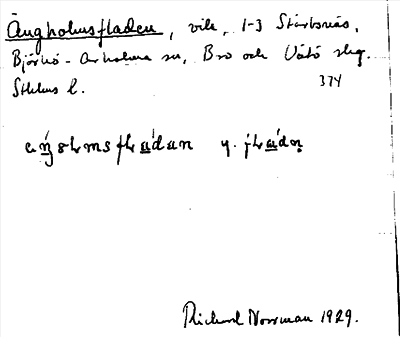 Ängholmsfladen, vik, 1-3 Starbsnäs,
Björkö-Arholma sn, Bro och Vätö skg.
Sthlms l. 374
Richard Norrman 1929.